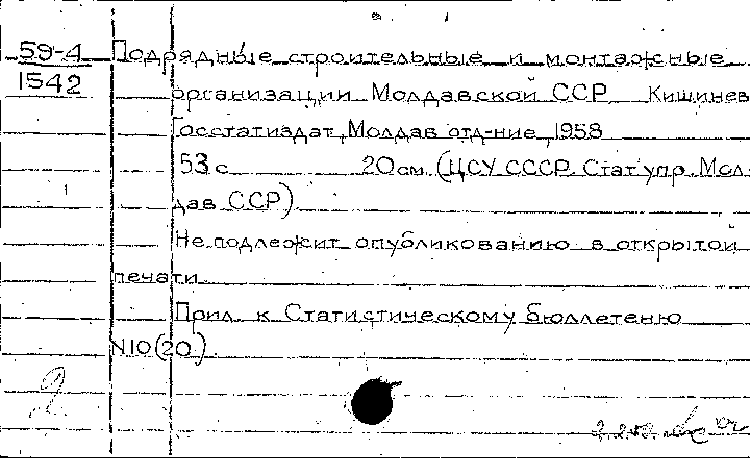 59-4 Подрядные строительные и монтажные
1542 организации Молдавской ССР Кишинев
Госстатиздат, Молдав отд-ние, 1958
53 с 20 см. (ЦСУ СССР. Стат упр. Мол-
дав ССР)
Не подлежит опубликованию в открытой
печати
Прил. к Статистическому бюллетеню
N10(20)
2